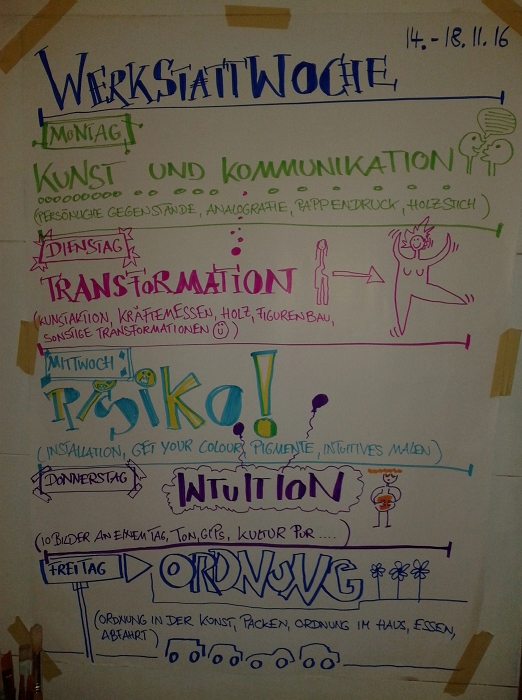 14. - 18. 11. 16
WERKSTATTWOCHE
MONTAG
KUNST UND KOMMUNIKATION
(PERSÖNLICHE GEGENSTÄNDE, ANALOGRAFIE, PAPPENDRUCK, HOLZSTICH)
DIENSTAG
TRANSFORMATION
(KUNSTAKTION, KRÄFTEMESSEN, HOLZ, FIGURENBAU,
SONSTIGE TRANSFORMATIONEN ☺)
MITTWOCH
RISIKO!
(INSTALLATION, GET YOUR COLOUR, PIGMENTE, INTUITIVES MALEN)
DONNERSTAG
INTUITION
(10 BILDER AN EINEM TAG, TON, GIPS, KULTUR PUR ....)
FREITAG
ORDNUNG
(ORDNUNG IN DER KUNST, PACKEN, ORDNUNG IM HAUS, ESSEN,
ABFAHRT)